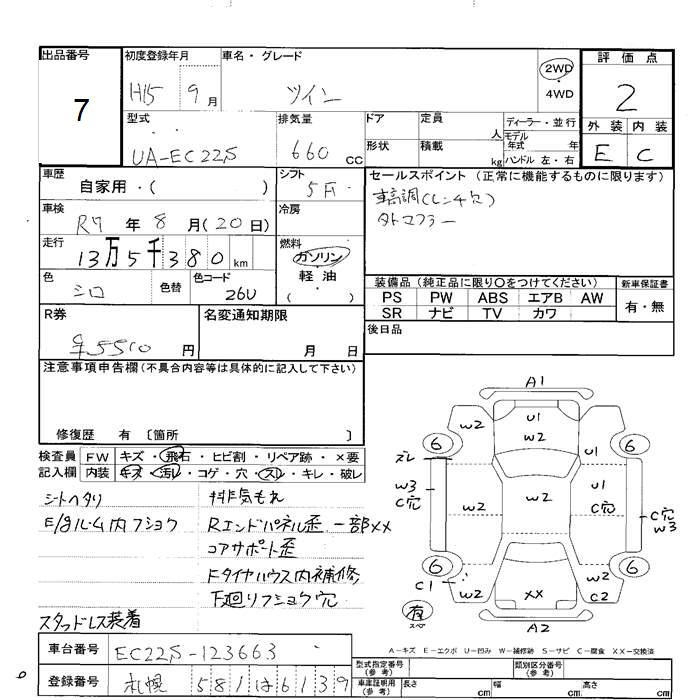 出品番号
7
初度登録年月
H15 9月
車名・グレード
ツイン
2WD
・
4WD
評価点
2
外装 内装
E C
型式
UA-EC22S
排気量
660 cc
ドア
定員
人
ディーラー・並行
形状
積載
kg
モデル年式 年
ハンドル 左・右
車歴
自家用・( )
シフト
5F
セールスポイント (正常に機能するものに限ります)
車高調(レンチ欠)
外マフラー
車検
R7 年 8月(20日)
冷房
走行
13万5千380 km
燃料
ガソリン
・
軽油
( )
色
シロ
色替
色コード
26U
装備品 (純正品に限り〇をつけてください)
PS PW ABS エアB AW
SR ナビ TV カワ
新車保証書
有・無
R券
¥5510 円
名変通知期限
月 日
後日品
注意事項申告欄(不具合内容等は具体的に記入して下さい)
修復歴 有 〔箇所 〕
検査員記入欄
FW キズ・飛石・ヒビ割・リペア跡・×要
内装 キズ・汚レ・コゲ・穴・スレ・キレ・破レ
シートヘタリ
E/gルーム内フショク
スタッドレス装着
排気もれ
Rエンドパネル歪 一部XX
コアサポート歪
Fタイヤハウス内補修
下廻りフショク穴
A1
W2 U1 W2
6 6
ズレ
U1
W3 C穴
W2 W2 U1 C穴
C穴 W3
6 6
C1
W2 XX W2 C2
有
スペア
A2
A-キズ E-エクボ U-凹み W-補修跡 S-サビ C-腐食 XX-交換済
車台番号
EC22S-123663
登録番号
札幌 581 は 6139
型式指定番号(参考)
類別区分番号(参考)
車庫証明用(参考)
長さ cm
幅 cm
高さ cm